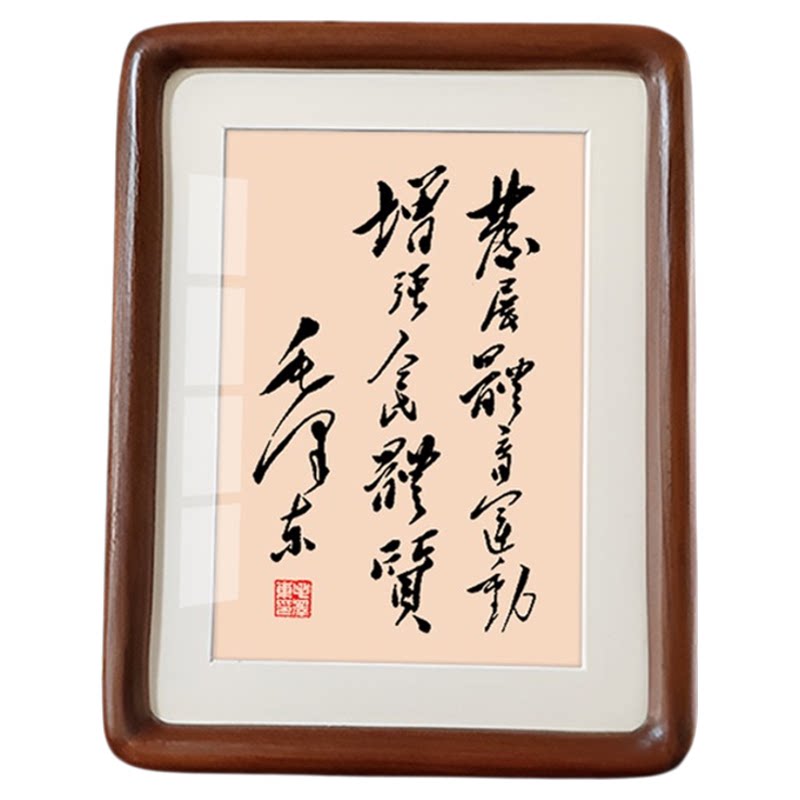 發展體育運動
增強人民體質
毛澤东